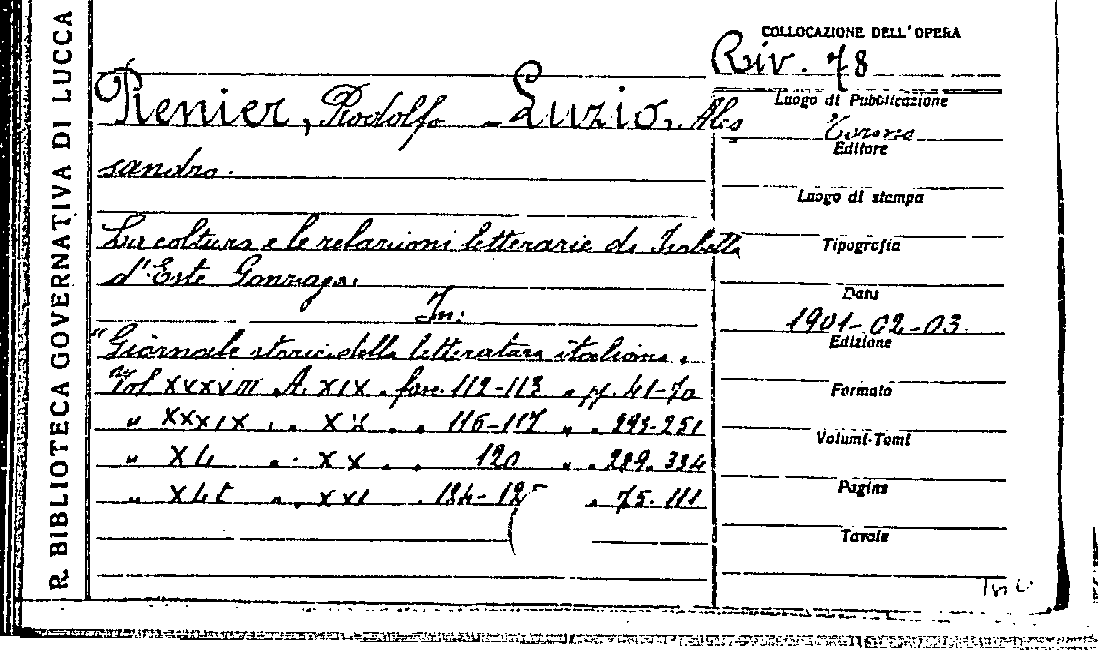 R. BIBLIOTECA GOVERNATIVA DI LUCCA
COLLOCAZIONE DELL'OPERA
Riv. 78
Renier, Rodolfo - Luzio, Ales
sandro.
La coltura e le relazioni letterarie di Isabella
d'Este Gonzaga.
In:
"Giornale storico della letteratura italiana.
Vol XXXVIII A. XIX. fasc. 112-113 pp. 41-70
" XXXIX " XX " 116-117 "
" XL " XX " 120 " 289-334
" XLI " XXI " 124-125 " 75-111
Luogo di Pubblicazione
Torino
Editore
Luogo di stampa
Tipografia
Data
1901-02-03.
Edizione
Formato
Volumi-Tomi
Pagine
Tavole